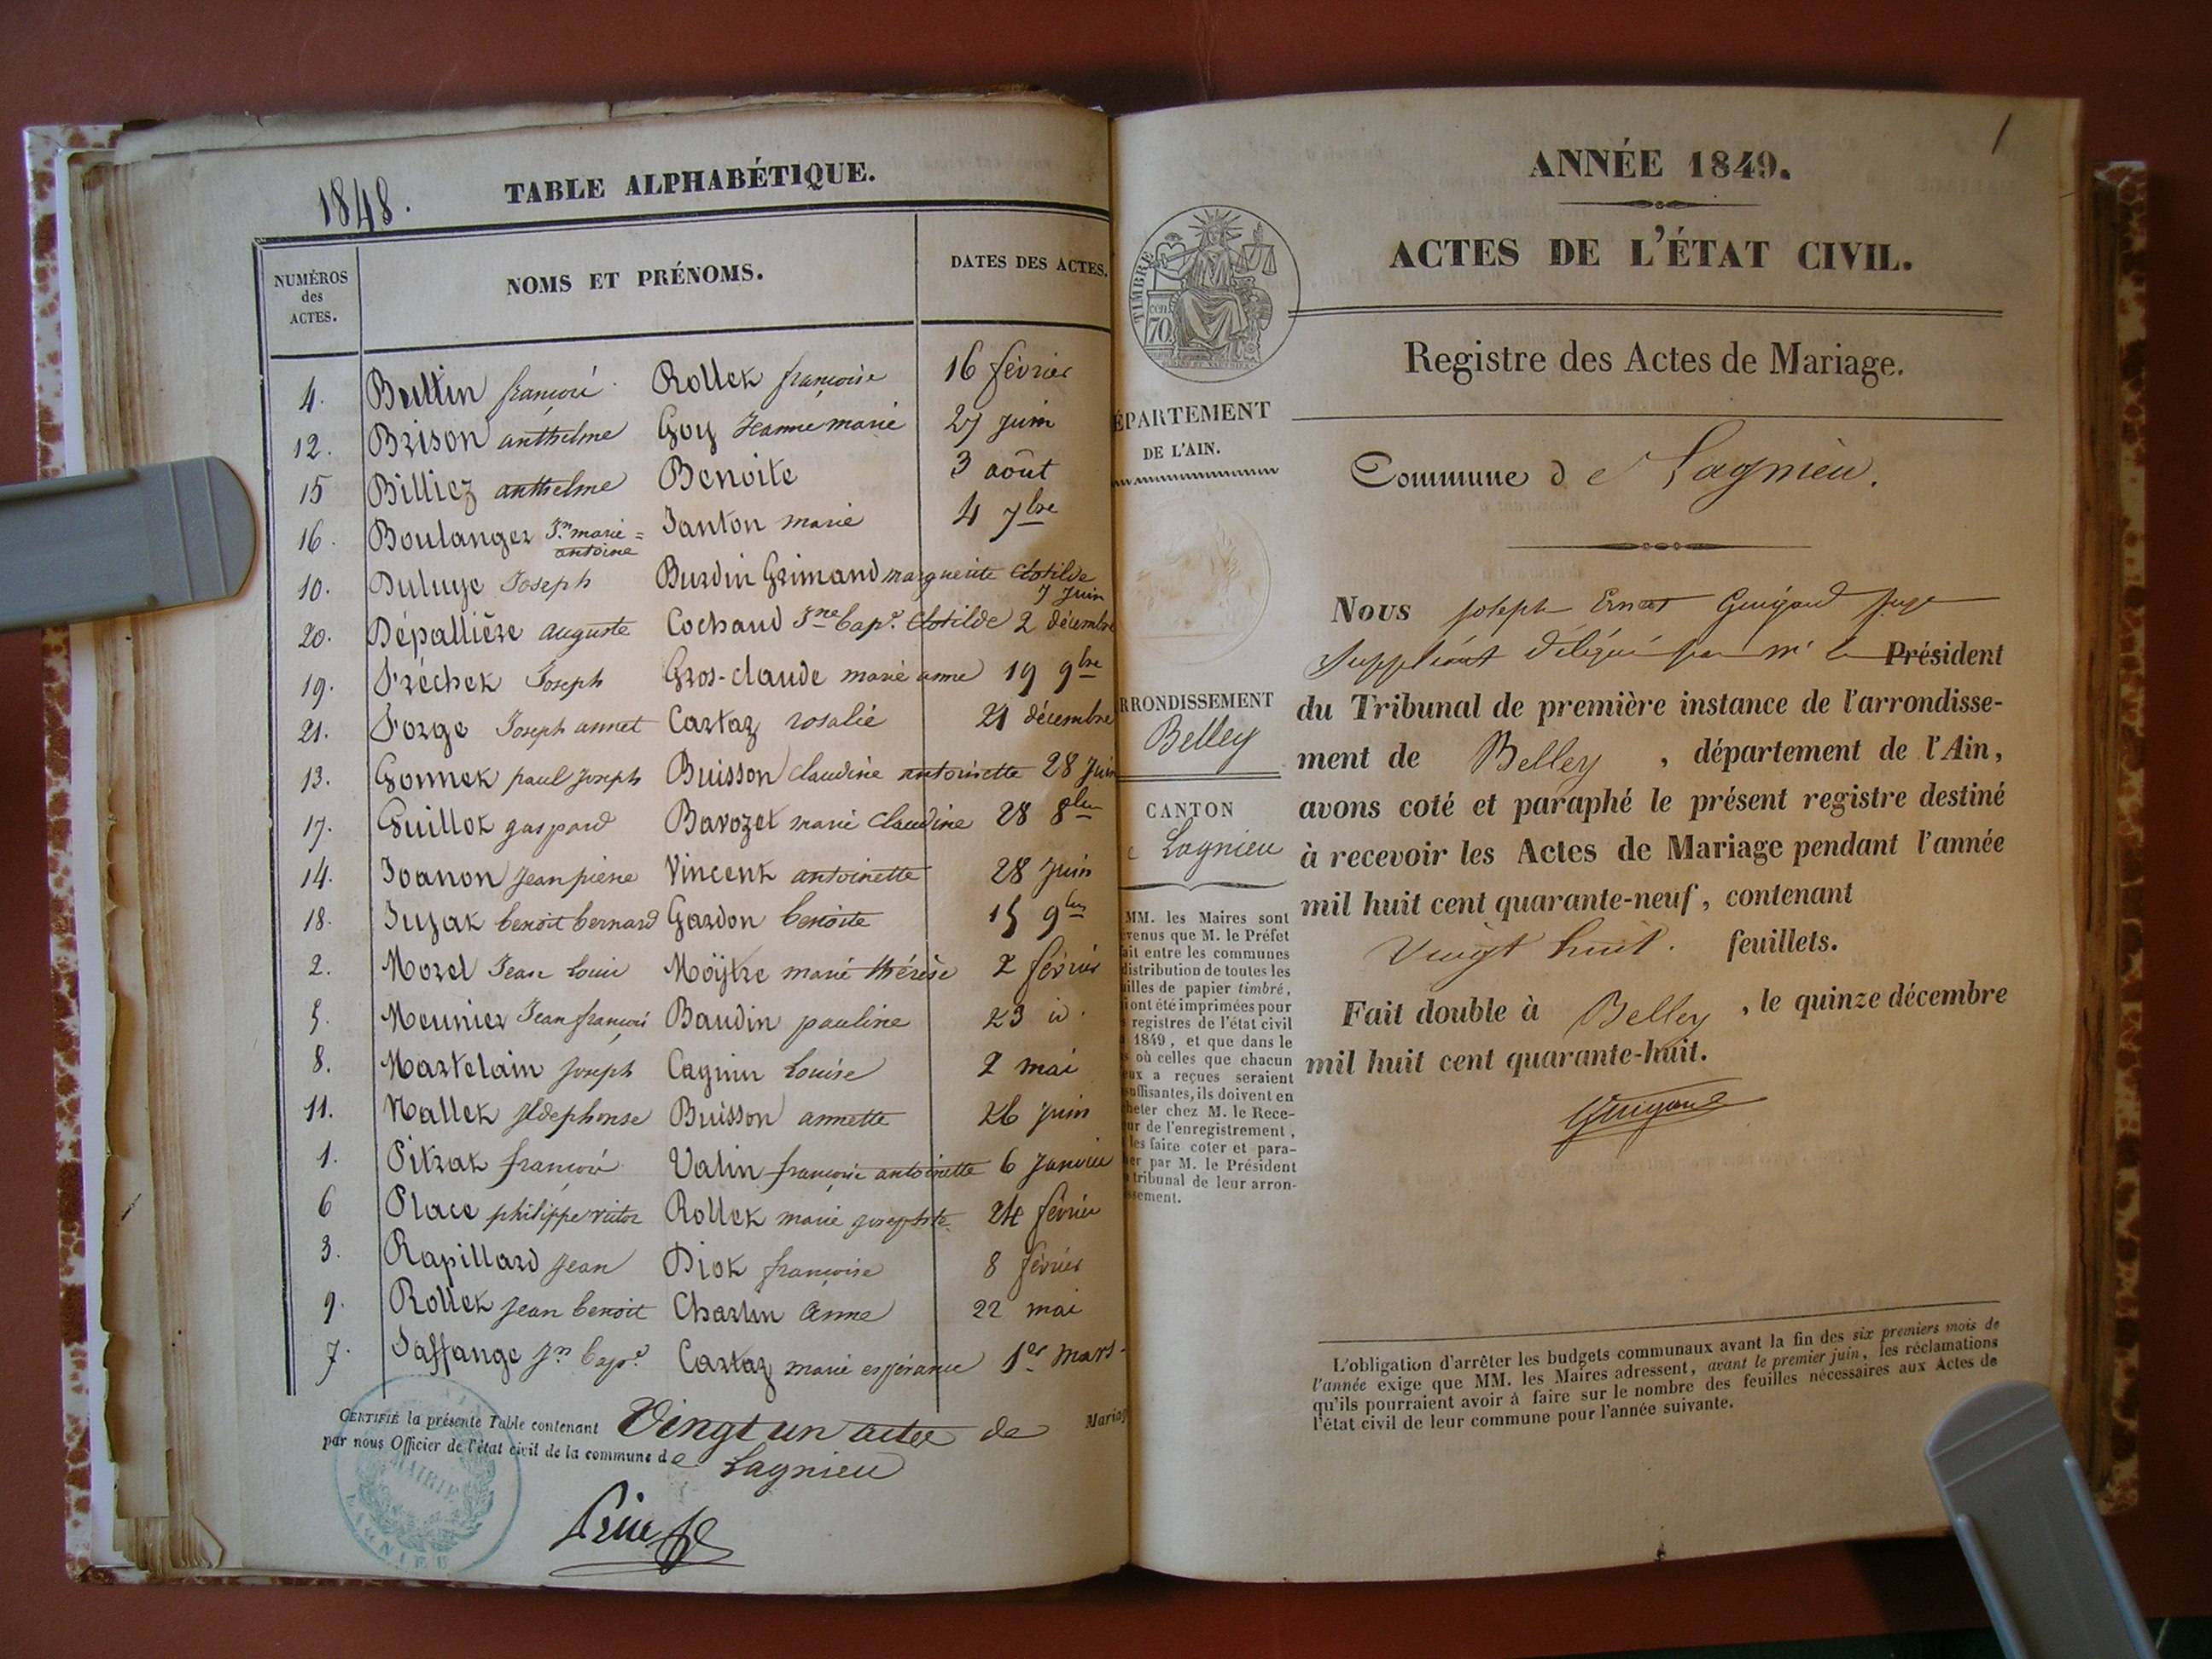 1848.
TABLE ALPHABÉTIQUE.
NUMÉROS des ACTES.
NOMS ET PRÉNOMS.
DATES DES ACTES.
4. Buttin françois Rollet françoise 16 février
12. Brison anthelme Goy Jeanne marie 27 juin
15 Billiez anthelme Benoite 3 août
16. Boulanger Jn. marie = antoine Janton marie 4 7bre
10. Duluye Joseph Burdin Grimand marguerite Clotilde 7 Juin
20. Dépallière auguste Cochaud Jne Bapte. Clotilde 2 décembre
19. Fréchet Joseph Gros-claude marie anne 19 9bre
21. Forge Joseph annet Cartaz rosalie 21 décembre
13. Gonnet paul Joseph Buisson claudine antoinette 28 Juin
17. Guillot gaspard Bavozet marie claudine 28 8bre
14. Joanon jean pierre Vincent antoinette 28 juin
18. Jujat benoit bernard Gardon benoite 15 9bre
2. Morel Jean Louis Moÿtre marie thérèse 2 février
5. Meunier Jean françois Baudin pauline 23 id.
8. Martelain joseph Cagnin Louise 2 mai
11. Nallet ildephonse Buisson annette 26 juin
1. Pitrat françois Valin françoise antoinette 6 Janvier
6 Place philippe victor Rollet marie josephte 24 février
3. Rapillard jean Diot françoise 8 février
9. Rollet jean benoit Charlin anne 22 mai
7. Saffange Jn Bapte. Cartaz marie espérance 1er mars
CERTIFIÉ la présente Table contenant Vingt un actes de Mariag
par nous Officier de l'état civil de la commune de Lagnieu
MAIRIE
LAGNIEU
1
ANNÉE 1849.
ACTES DE L'ÉTAT CIVIL.
TIMBRE
cen 70
Registre des Actes de Mariage.
ÉPARTEMENT
DE L'AIN.
Commune de Lagnieu.
Nous joseph Ernest Guigard juge
Suppléant délégué par mr le Président
du Tribunal de première instance de l'arrondisse-
ment de Belley, département de l'Ain,
avons coté et paraphé le présent registre destiné
à recevoir les Actes de Mariage pendant l'année
mil huit cent quarante-neuf, contenant
Vingt huit. feuillets.
Fait double à Belley, le quinze décembre
mil huit cent quarante-huit.
Guigard
RRONDISSEMENT
Belley
CANTON
e Lagnieu
MM. les Maires sont
venus que M. le Préfet
ait entre les communes
distribution de toutes les
uilles de papier timbré,
i ont été imprimées pour
s registres de l'état civil
1849, et que dans le
s où celles que chacun
eux a reçues seraient
suffisantes, ils doivent en
heter chez M. le Rece-
ur de l'enregistrement,
les faire coter et para-
er par M. le Président
tribunal de leur arron-
ssement.
L'obligation d'arrêter les budgets communaux avant la fin des six premiers mois de
l'année exige que MM. les Maires adressent, avant le premier juin, les réclamations
qu'ils pourraient avoir à faire sur le nombre des feuilles nécessaires aux Actes de
l'état civil de leur commune pour l'année suivante.